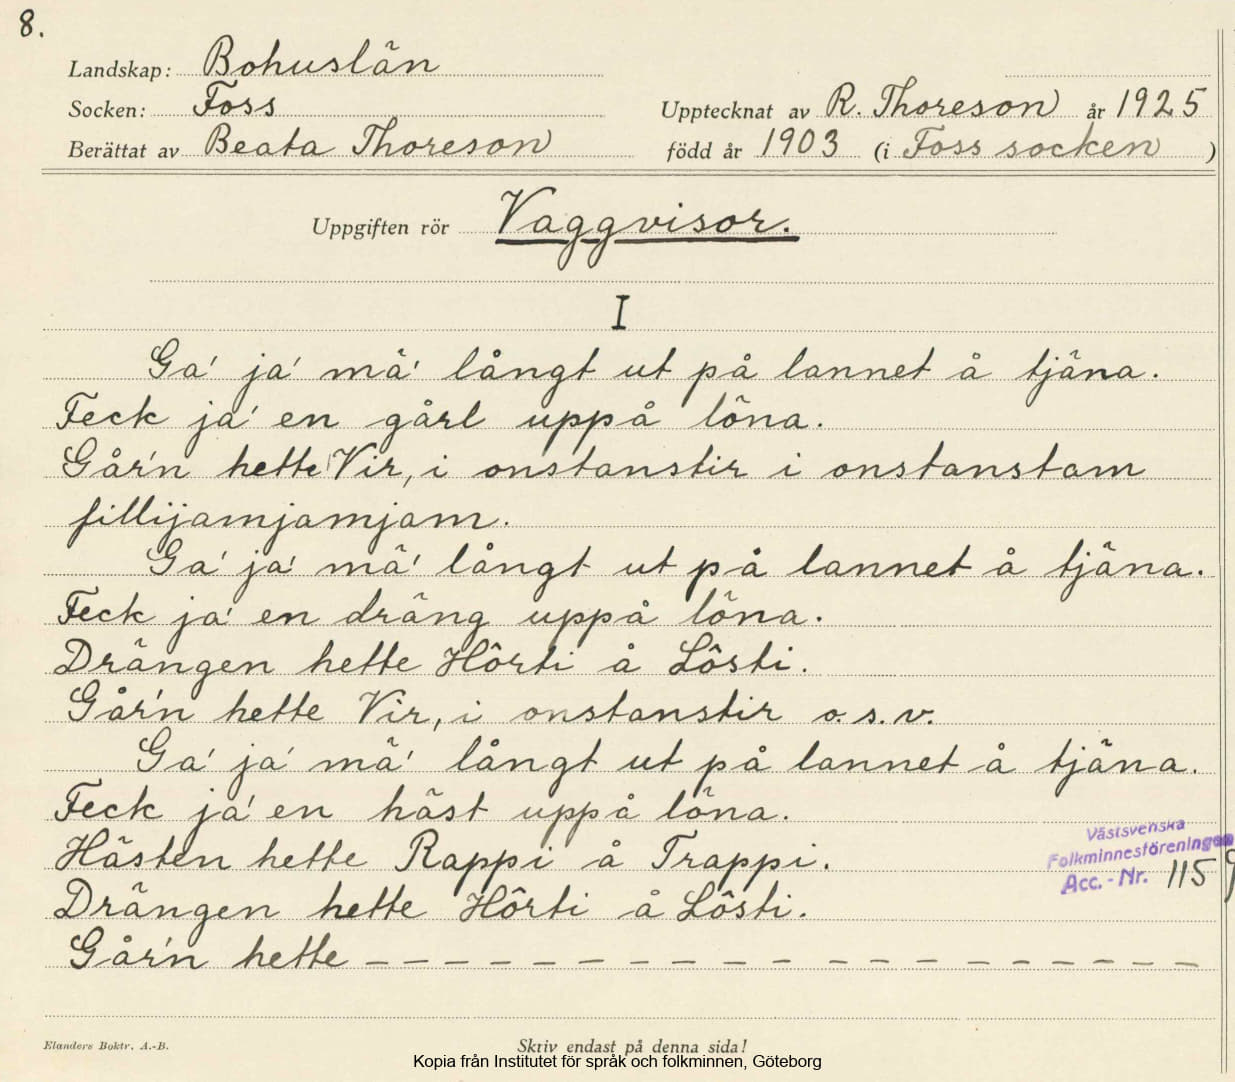 8.
Landskap: Bohuslän
Socken: Foss
Upptecknat av R. Thoreson år 1925
Berättat av Beata Thoreson född år 1903 (i Foss socken )
Uppgiften rör Vaggvisor.
I
Ga' ja' mä' långt ut på lannet å tjäna.
Feck ja' en gårl uppå löna.
Går'n hette Vir, i onstanstir i onstanstam
fillijamjamjam.
Ga' ja' mä' långt ut på lannet å tjäna.
Feck ja' en dräng uppå löna.
Drängen hette Hôrti å Lôsti.
Går'n hette Vir, i onstanstir o.s.v.
Ga' ja' mä' långt ut på lannet å tjäna.
Feck ja' en häst uppå löna.
Hästen hette Rappi å Trappi.
Drängen hette Hôrti å Lôsti.
Går'n hette – – – – – – – – – – – – – – – – – –
Västsvenska
Folkminnesföreningen
Acc. - Nr. 115
Elanders Boktr. A.-B.
Skriv endast på denna sida!
Kopia från Institutet för språk och folkminnen, Göteborg